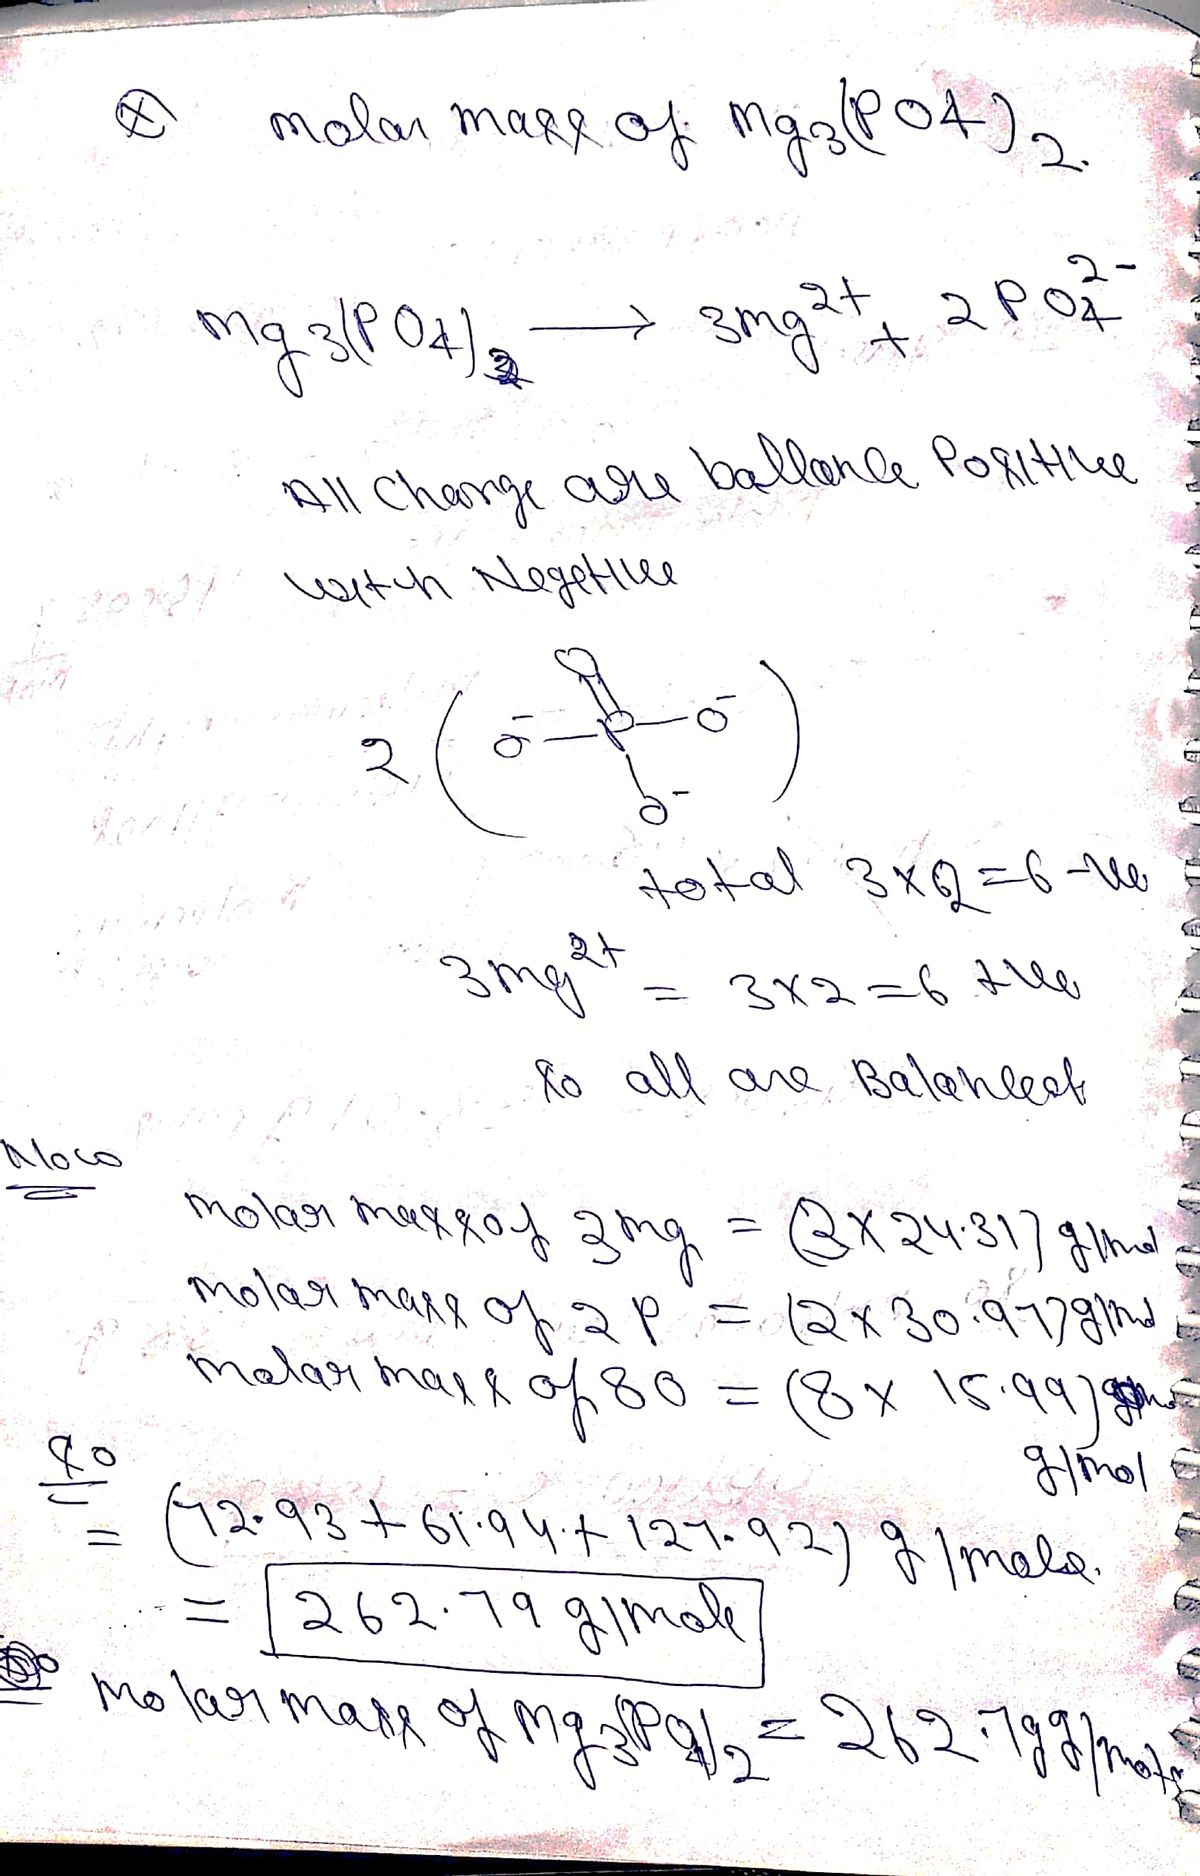 molar mass of Mg3(PO4)2.
Mg3(PO4)2 → 3mg2+ + 2PO4 2-
All Change are ballance Positive
with Negetive
2 ( O- P O- O O- )
total 3×2=6 -ve
3mg2+ = 3×2=6 +ve
so all are Balanced
Now
molar mass of 3mg = (3×24.31) g/mol
molar mass of 2P = (2×30.97) g/mol
molar mass of 8O = (8× 15.99)
g/mol
So
= (72.93 + 61.94 + 127.92) g/mole.
= 262.79 g/mole
molar mass of Mg3(PO4)2 = 262.79g/mole